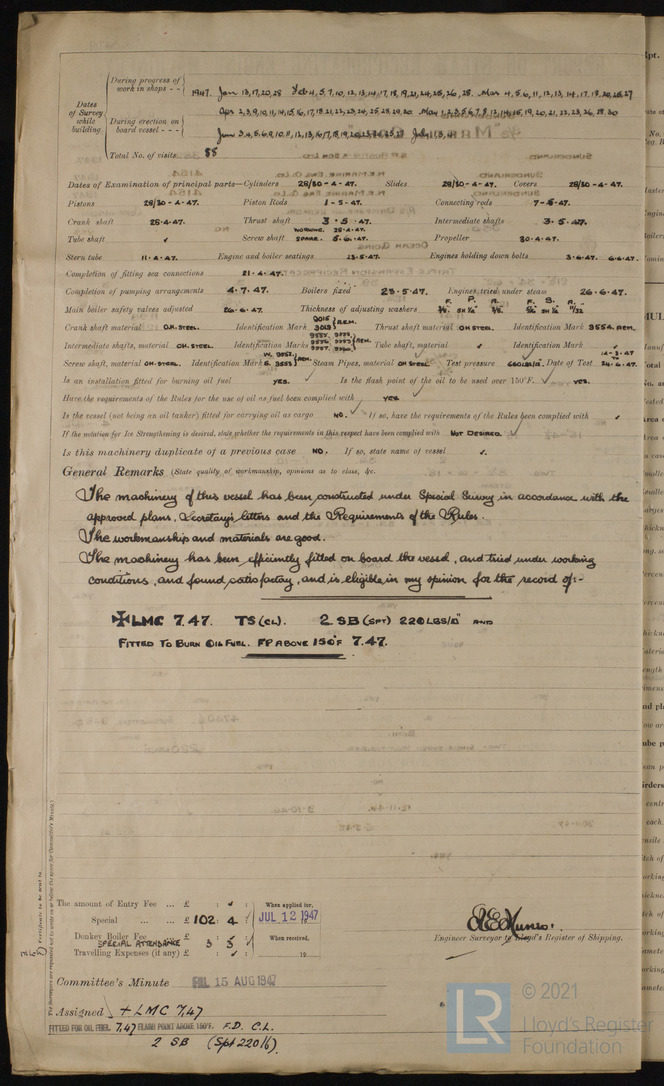 During progress of work in shops - - 1947. Jan 13, 17, 20, 28 Feb 4, 5, 7, 10, 12, 13, 14, 17, 18, 19, 21, 24, 25, 26, 28. Mar 4, 5, 6, 11, 12, 13, 14, 17, 18, 20, 25, 27
Dates of Survey while building
Apr 2, 3, 9, 10, 11, 14, 15, 16, 17, 18, 21, 22, 23, 24, 25, 28, 29, 30 May 1, 2, 3, 5, 6, 7, 8, 12, 14, 15, 19, 20, 21, 22, 23, 26, 28, 30
During erection on board vessel - - -
Jun 3, 4, 5, 6, 9, 10, 11, 12, 13, 16, 17, 18, 19, 20 July 1, 3, 4
Total No. of visits 88
Dates of Examination of principal parts—Cylinders 28/30-4-47. Slides 28/30-4-47. Covers 28/30-4-47.
Pistons 28/30-4-47. Piston Rods 1-5-47. Connecting rods 7-5-47.
Crank shaft 28-4-47. Thrust shaft 3.5.47. Intermediate shafts 3.5.47.
Tube shaft ✓ Screw shaft WORKING. 28-4-47. SPARE. 5.6.47. Propeller 30.4.47.
Stern tube 11.4.47. Engine and boiler seatings 23-5-47. Engines holding bolts 3.6.47. 6.6.47.
Completion of fitting sea connections 21.4.47.
Completion of pumping arrangements 4.7.47. Boilers fixed 28-5-47. Engines tried under steam 26.6.47.
Main boiler safety valves adjusted 26.6.47. Thickness of adjusting washers F. P. A. F. S. A.
Crank shaft material O.H. STEEL. Identification Mark 9015 3013 R.E.M. Thrust shaft material O.H STEEL. Identification Mark 3554. R.E.M.
Intermediate shafts, material O.H. STEEL. Identification Marks R.E.M. Tube shaft, material ✓ Identification Mark ✓
Screw shaft, material O.H. STEEL. Identification Mark W. 3552. S. 3553 R.E.M. Steam Pipes, material O.H STEEL. Test pressure 660 LBS/□". Date of Test 14-3-47 TO 24.6.47.
Is an installation fitted for burning oil fuel YES. Is the flash point of the oil to be used over 150°F. ✓ YES.
Have the requirements of the Rules for the use of oil as fuel been complied with YES
Is the vessel (not being an oil tanker) fitted for carrying oil as cargo NO. If so, have the requirements of the Rules been complied with ✓
If the notation for Ice Strengthening is desired, state whether the requirements in this respect have been complied with NOT DESIRED.
Is this machinery duplicate of a previous case NO. If so, state name of vessel ✓.
General Remarks (State quality of workmanship, opinions as to class, &c.
The machinery of this vessel has been constructed under Special Survey in accordance with the
approved plans, Secretary's letters and the Requirements of the Rules.
The workmanship and materials are good.
The machinery has been efficiently fitted on board the vessel, and tried under working
conditions, and found satisfactory, and is eligible in my opinion for the record of:-
✠ LMC 7.47. TS (CL). 2 SB (SPT) 220 LBS/□" AND
FITTED TO BURN OIL FUEL. FP ABOVE 150°F 7.47.
The amount of Entry Fee ... £ : ✓ : When applied for,
Special ... ... £ 102 : 4 : JUL 12 1947
Donkey Boiler Fee SPECIAL ATTENDANCE £ 3 : 3 : When received,
Travelling Expenses (if any) £ : ✓ : 19
Engineer Surveyor to Lloyd's Register of Shipping.
Committee's Minute FRI. 15 AUG 1947
Assigned + LMC 7,47
FITTED FOR OIL FUEL 7,47 FLASH POINT ABOVE 150°F. F.D. C.L.
2 SB (Spt 220 lb).
© 2021
LR Lloyd's Register
Foundation